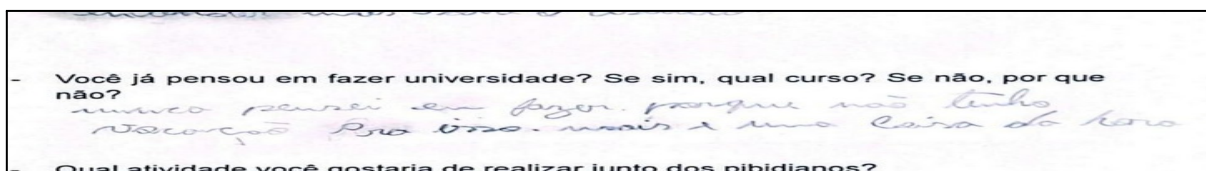 - Você já pensou em fazer universidade? Se sim, qual curso? Se não, por que
não?
nunca pensei em fazer. porque não tenho
vocarção Pra isso. mais é uma Coisa da hora
- Qual atividade você gostaria de realizar junto dos pibidianos?